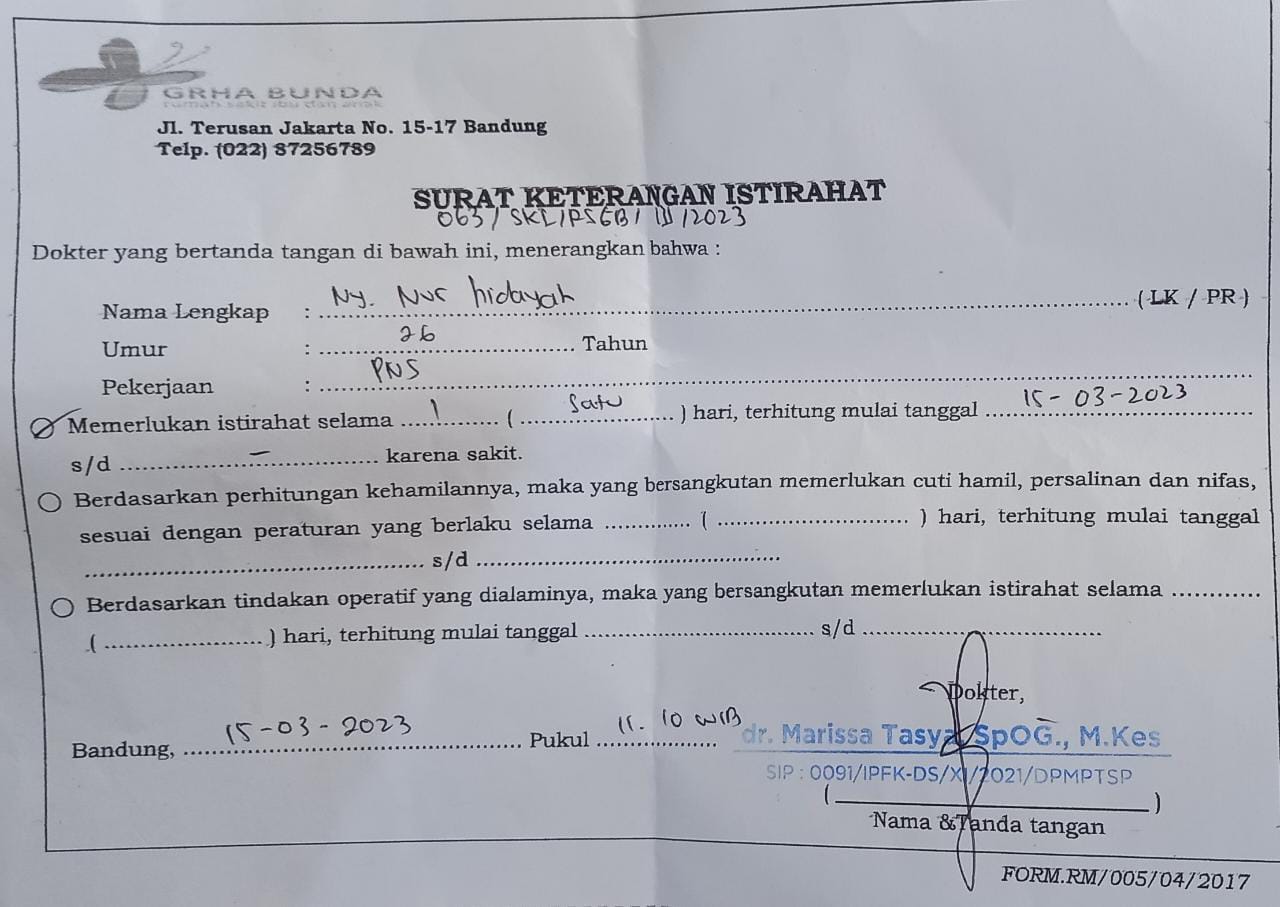 GRHA BUNDA
rumah sakit ibu dan anak
Jl. Terusan Jakarta No. 15-17 Bandung
Telp. (022) 87256789
SURAT KETERANGAN ISTIRAHAT
063/SKI/RSGB/III/2023
Dokter yang bertanda tangan di bawah ini, menerangkan bahwa :
Nama Lengkap : Ny. Nur hidayah (LK / PR)
Umur : 26 Tahun
Pekerjaan : PNS
Memerlukan istirahat selama 1 ( Satu ) hari, terhitung mulai tanggal 15-03-2023
s/d - karena sakit.
Berdasarkan perhitungan kehamilannya, maka yang bersangkutan memerlukan cuti hamil, persalinan dan nifas,
sesuai dengan peraturan yang berlaku selama ............. ( ............................ ) hari, terhitung mulai tanggal
.................................................. s/d ..................................................
Berdasarkan tindakan operatif yang dialaminya, maka yang bersangkutan memerlukan istirahat selama ............
( ....................... ) hari, terhitung mulai tanggal .................................. s/d ...................................
Dokter,
Bandung, 15-03-2023 Pukul 11.10 WIB
dr. Marissa Tasya, SpOG., M.Kes
SIP : 0091/IPFK-DS/XI/2021/DPMPTSP
(______________________________)
Nama & Tanda tangan
FORM.RM/005/04/2017